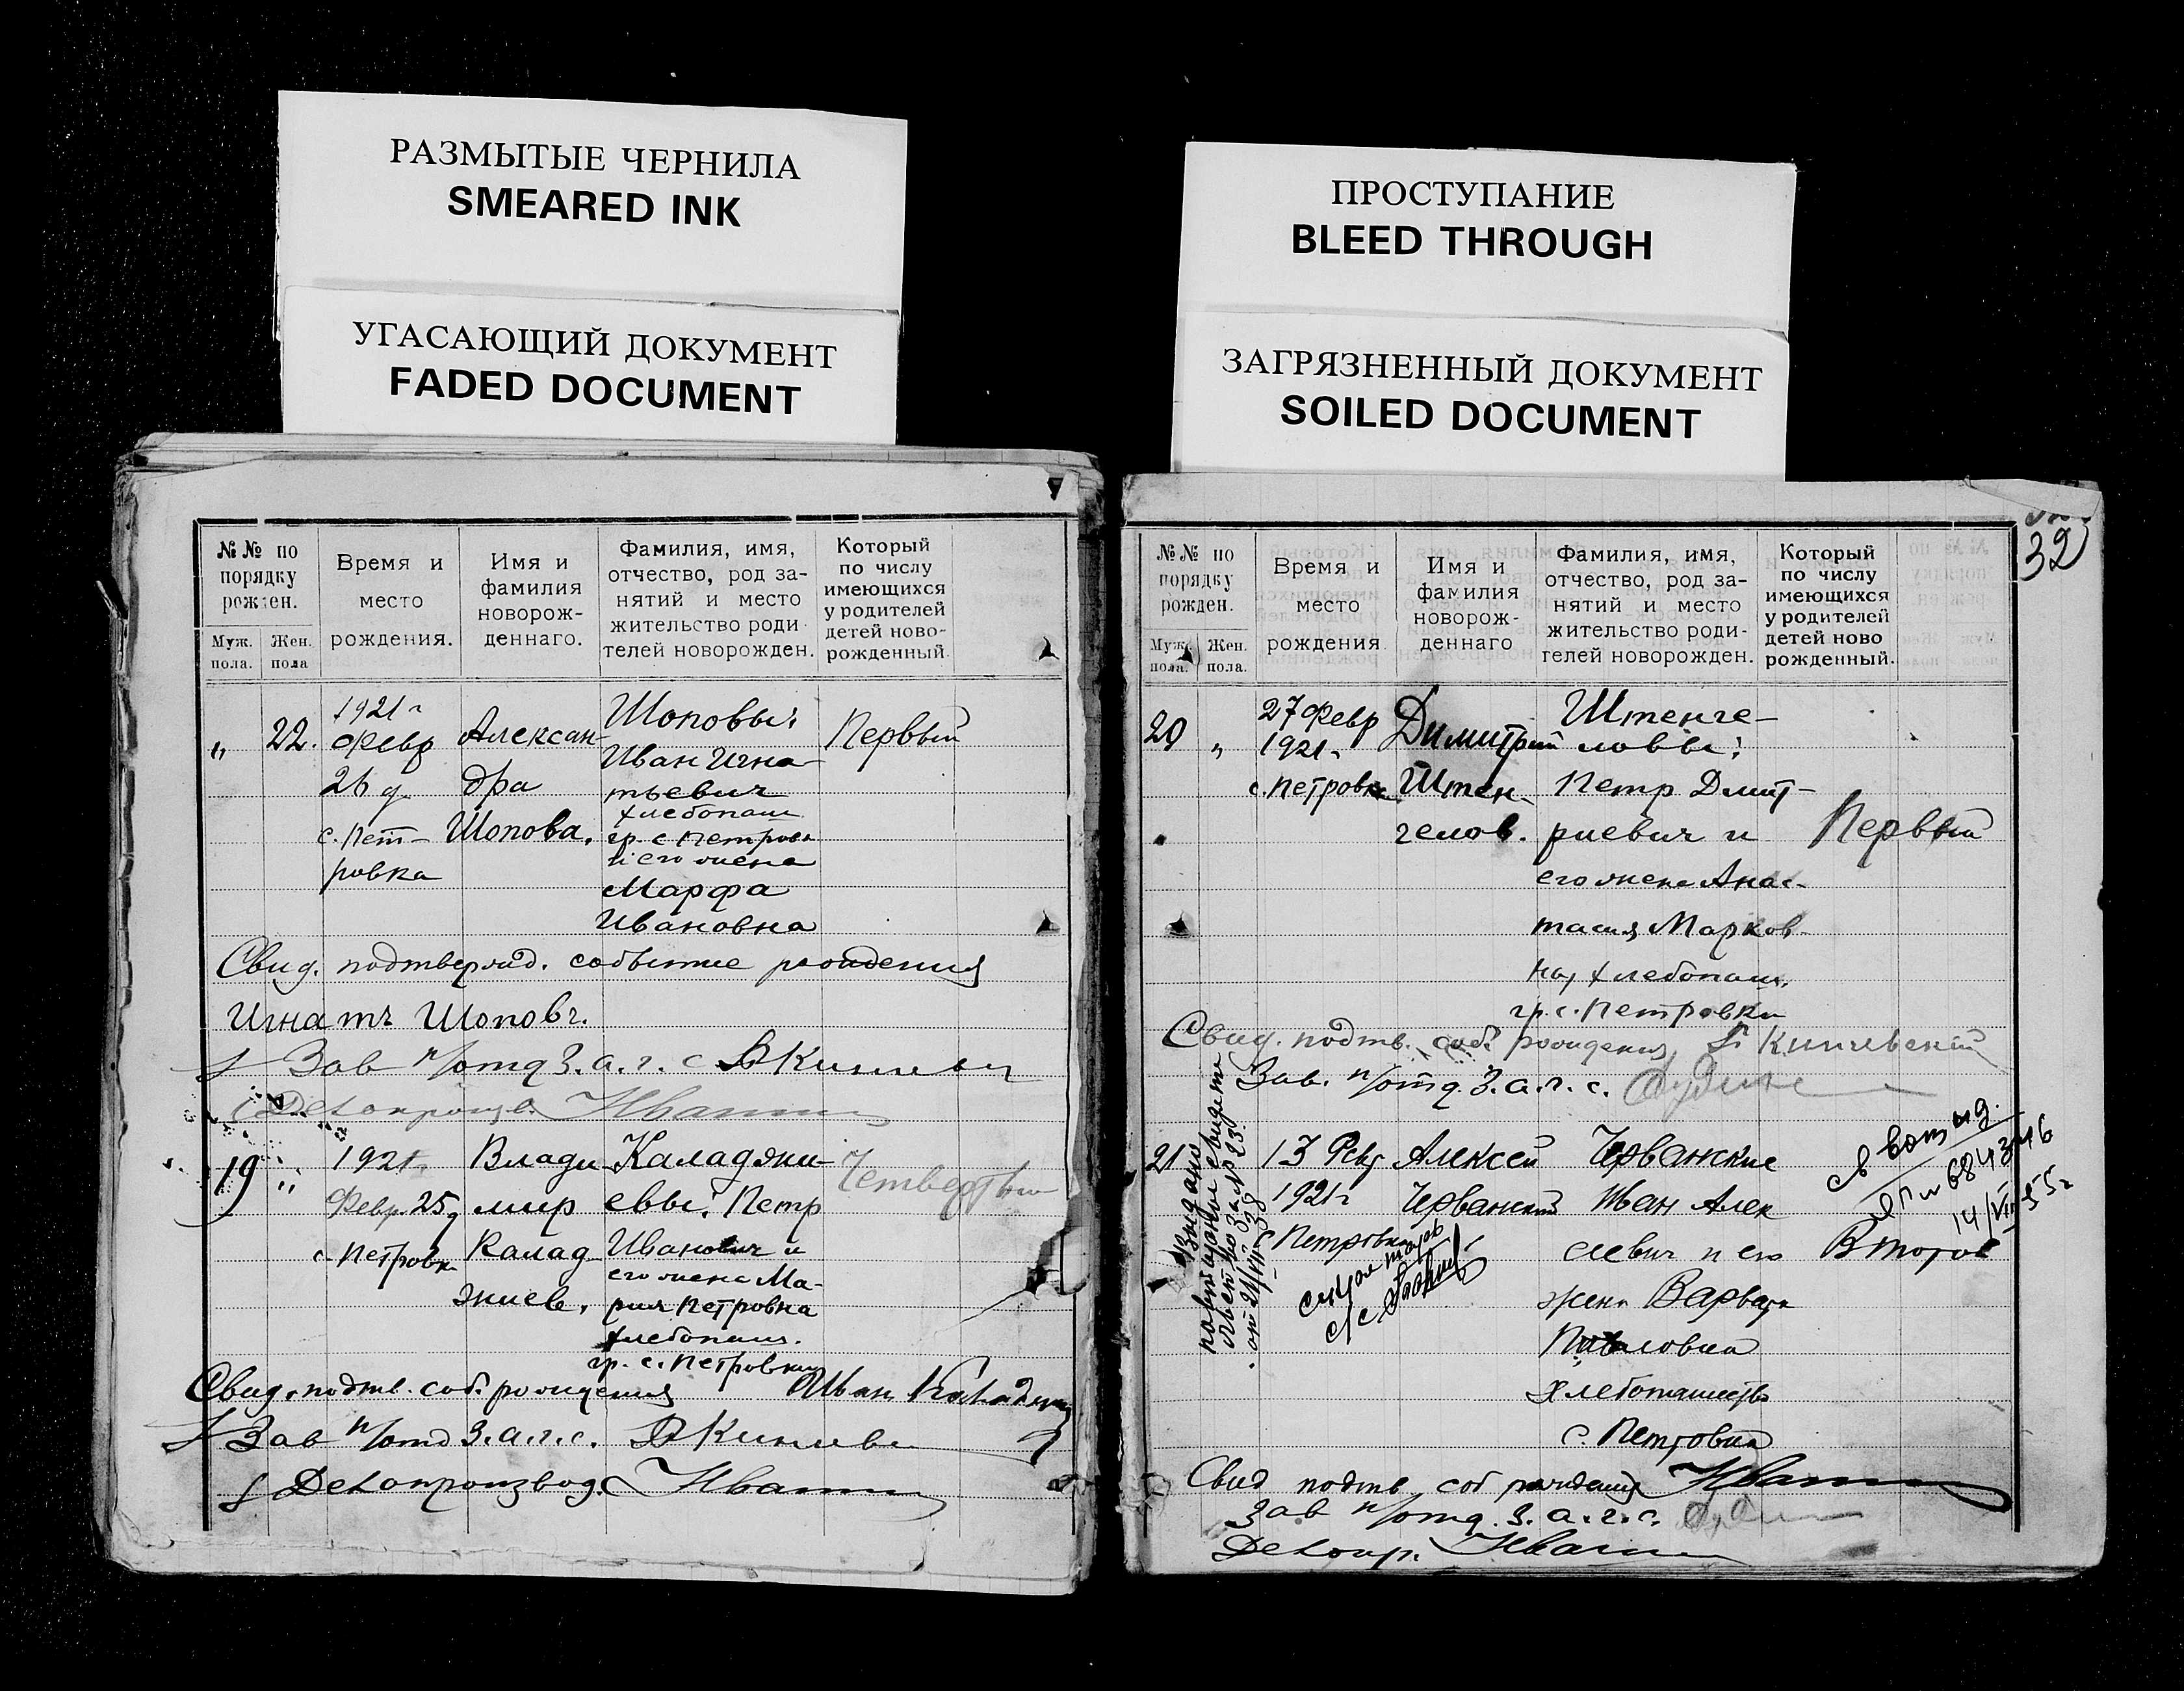 РАЗМЫТЫЕ ЧЕРНИЛА
SMEARED INK
УГАСАЮЩИЙ ДОКУМЕНТ
FADED DOCUMENT
ПРОСТУПАНИЕ
BLEED THROUGH
ЗАГРЯЗНЕННЫЙ ДОКУМЕНТ
SOILED DOCUMENT
№№ по
порядку
рожден.
Муж.
пола.
Жен.
пола
Время и
место
рождения.
Имя и
фамилия
новорож-
деннаго.
Фамилия, имя,
отчество, род за-
нятий и место
жительство роди-
телей новорожден.
Который
по числу
имеющихся
у родителей
детей ново-
рожденный.
„ 22.
1921 г
Февр
26 д
с. Пет-
ровка
Алексан-
дра
Шопова.
Шоповы:
Иван Игна-
тьевич
хлебопаш.
гр. с. Петровк
и его жена
Марфа
Ивановна
Первый
Свид. подтвержд. событие рождения
Игнатъ Шоповъ.
Зав п/отд З.а.г.с
19 „
1921 г.
Февр. 25 д
с. Петровк
Влади-
мир
Калад-
жиев.
Каладжи-
евы: Петр
Иванович и
его жена Ма-
рия Петровна
хлебопаш.
гр. с. Петровки
Четвертый
Свид. подтв. соб. рождения Иван
Зав п/отд З.а.г.с.
Делопроизвод.
32
№№ по
порядку
рожден.
Муж.
пола.
Жен.
пола.
Время и
место
рождения
Имя и
фамилия
новорож-
деннаго
Фамилия, имя,
отчество, род за-
нятий и место
жительство роди-
телей новорожден.
Который
по числу
имеющихся
у родителей
детей ново
рожденный.
20 „
27 Февр
1921 г.
с. Петровк
Димитрий
Штен-
гелов.
Штенге-
ловы:
Петр Дмит-
риевич и
его жена Анас-
тасия Марков-
на, хлебопаш.
гр. с. Петровки
Первый
Свид. подтв. соб. рождения
Зав. п/отд. З.а.г.с.
21
13 Февр
1921 г
с Петровка
Алексей
Червански
Черванские
Иван Алек
сеевич и его
жена Варвара
Павловна
хлебопашество
с. Петровка
Второй
14/VII 55 г
Свид подтв. соб рождения
Зав п/отд. З.а.г.с.
Делопр.